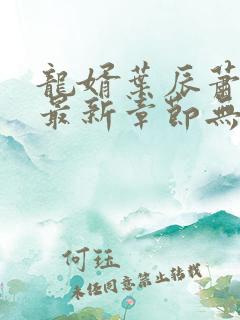 龍婿葉辰蕭
最新章節無
何珏
未經同意禁止轉載